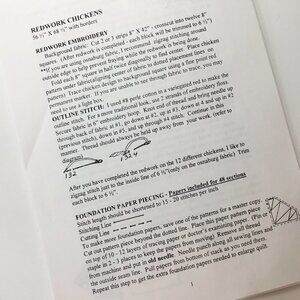 REDWORK CHICKENS
56 ½" X 68 ½" with borders
REDWORK EMBROIDERY
Background fabric: Cut 2 or 3 strips 8" X 42" - crosscut into twelve 8"
squares. (After redwork is completed - each block will be trimmed to 6 ½")
**If you are using osnaburg fabric, I recommend zigzag stitching around
outside edge to help prevent fraying while the redwork is being done.
Fold each 8" square in half twice diagonally to find center. Place chicken
pattern under fabric(aligning center of square to dotted placement lines on
pattern) Trace chicken design onto squares using a fine point red
permanent marker. If you are unable to see through fabric to trace, you may
need to use a light box.
OUTLINE STITCH: I used #8 perle cotton in a variegated red to make the
outline stitch. For a more traditional look, use 2 strands of embroidery floss.
Secure fabric in 6" embroidery hoop. Knot end of thread and bring needle up
through back of fabric at #1, go down at #2, up at #3, down at #4 and up in #2
(previous stitch), down in #5, and up through #4 stitch. Continue in this
manner. Thread should always be held up away from your work. (refer to
diagram)
132
1324
After you have completed the redwork on the 12 different chickens, I like to
zigzag stitch just to the inside line of 6 ½"(only on the osnaburg fabric) Trim
each block to 6 ½".
FOUNDATION PAPER PIECING - Papers included for 48 sections
Stitch length should be shortened to 15 - 20 stitches per inch
Stitching Line
Cutting Line
To make more foundation papers, save one of the patterns for a master copy.
Cut out pattern piece beyond the dotted line. Place this pattern paper piece
on top of 10 - 12 layers of tracing paper or doctor's examining paper. (Pin or
staple in 2 - 3 places to keep the papers from moving) Remove all thread
from machine and put in old needle. Needle punch along all sewing lines and
the outside seam line. Pull papers from bottom of stack as you need them.
Repeat this step to get the extra foundation papers needed to enlarge quilt.
1